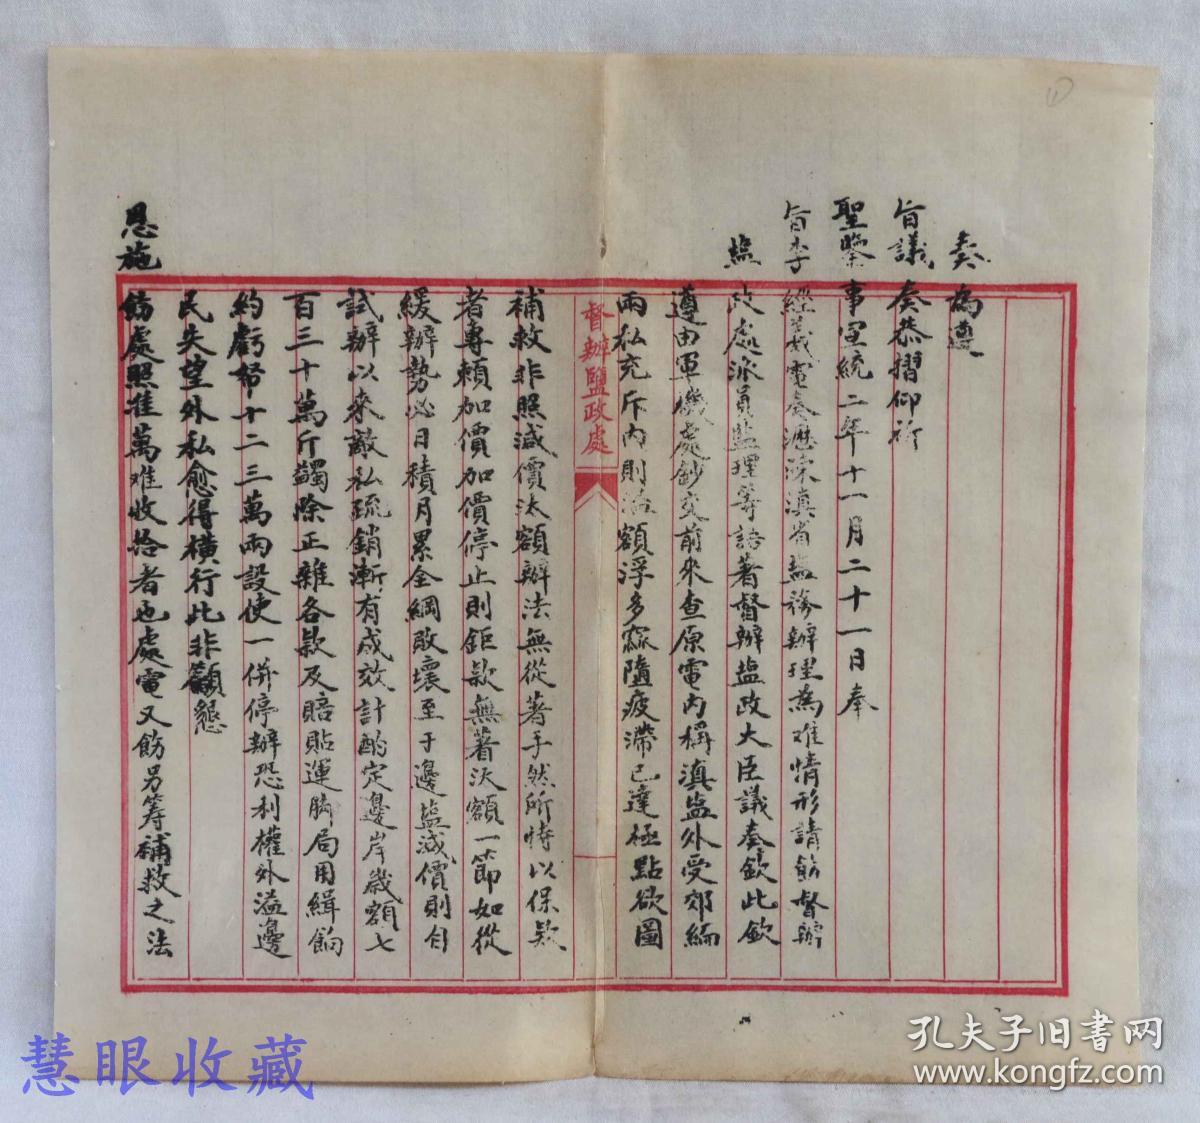 奏為遵
旨議奏恭摺仰祈
聖鑒事宣統二年十一月二十一日奉
旨李經羲電奏瀝陳滇省盐務辦理為难情形請飭督辦
盐政處派員监理等語著督辦盐政大臣議奏欽此欽
遵由軍機處鈔交前來查原電內稱滇盐外受郊緬
兩私充斥內則溢額浮多窳隨疲滯已達極點欲圖
督辦鹽政處
補救非照減價汰額辦法無從著手然所恃以保款
者專賴加價加價停止則鉅款無著汰額一節如從
緩辦勢必日積月累全綱敗壞至于邊盐減價則自
試辦以來敵私疏銷漸有成效計酌定邊岸歲額七
百三十萬斤蠲除正雜各款及賠貼運腳局用緝餉
約虧帑十二三萬兩設使一併停辦恐利權外溢邊
民失望外私愈得橫行此非籲懇
恩施飭處照准萬难收拾者也處電又飭另筹補救之法
慧眼收藏
孔夫子旧書网
www.kongfz.com